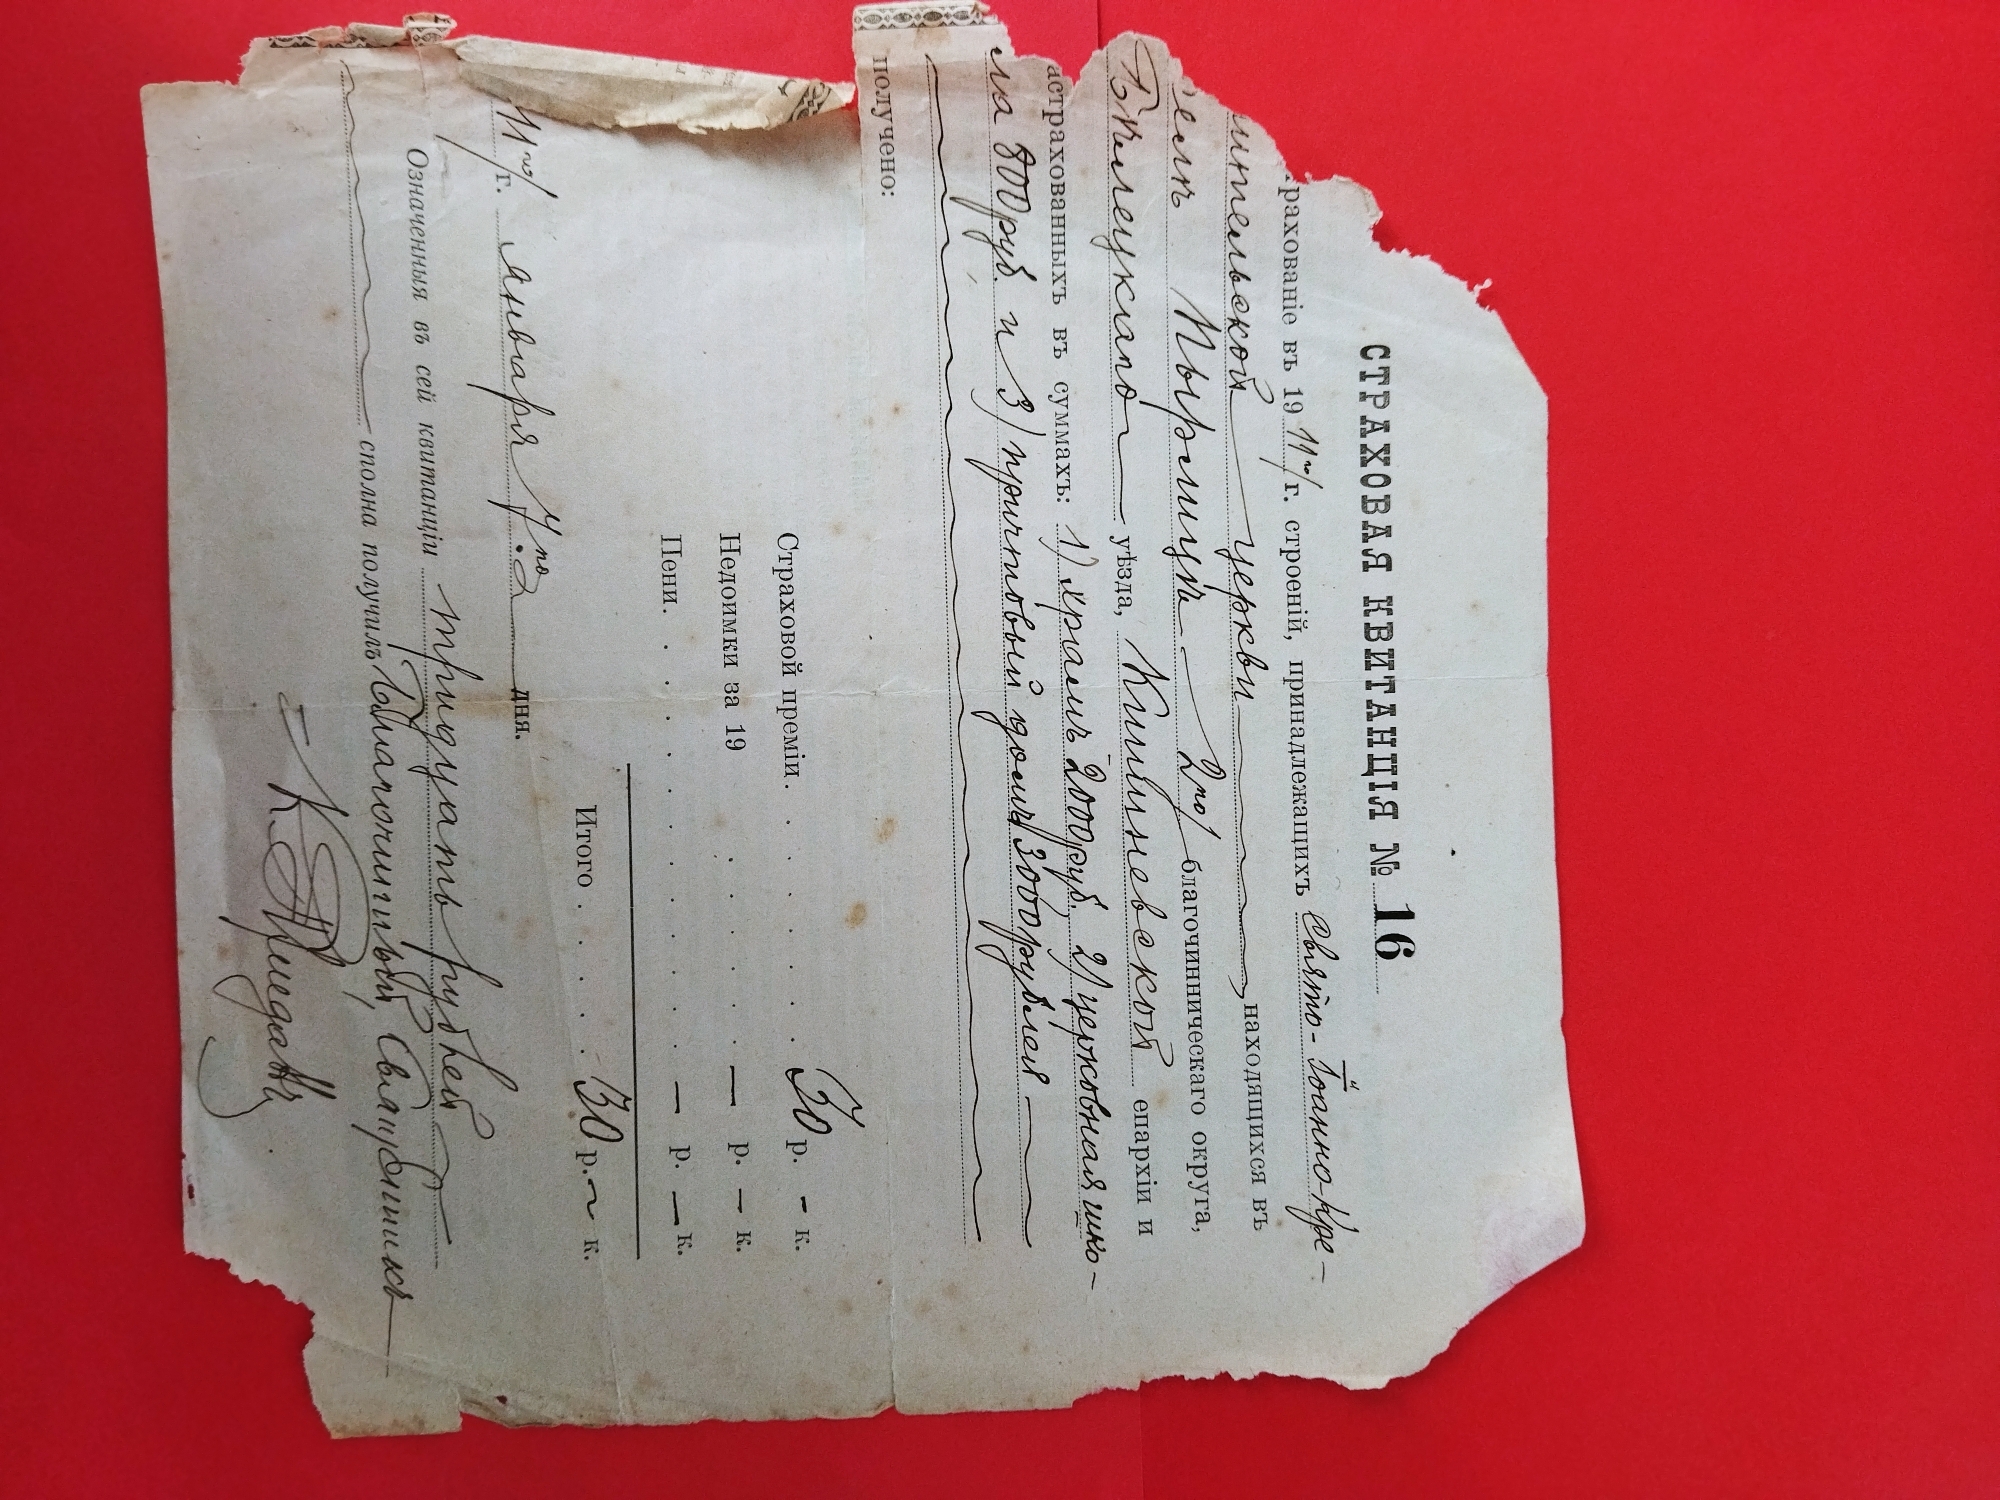 СТРАХОВАЯ КВИТАНЦІЯ № 16
рахованіе въ 1911го/ г. строеній, принадлежащихъ Свято-Іоанно-Кре-
тительской церкви находящихся въ
селѣ Пырлицѣ 2го/ благочинническаго округа,
Бѣлецкаго уѣзда, Кишиневской епархіи и
астрахованныхъ въ суммахъ: 1) храмъ 2000 руб. 2) церковная шко-
ла 800 руб. и 3) причтовый домъ 3000 рублей
получено:
Страховой преміи. 30 р. – к.
Недоимки за 19 – р. – к.
Пени. – р. – к.
Итого 30 р. ~ к.
11го/ г. января 4го дня.
Означенныя въ сей квитанціи тридцать рублей
сполна получилъ Благочинный, Священникъ